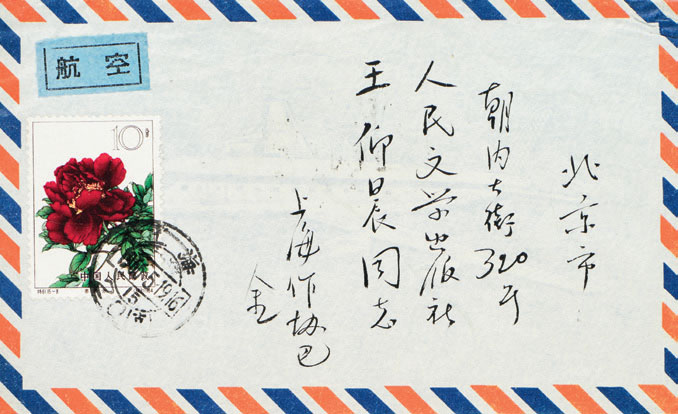 航空
10分
中国人民邮政
北京市
朝内大街320号
人民文学出版社
王仰晨同志
上海作协巴
金
海